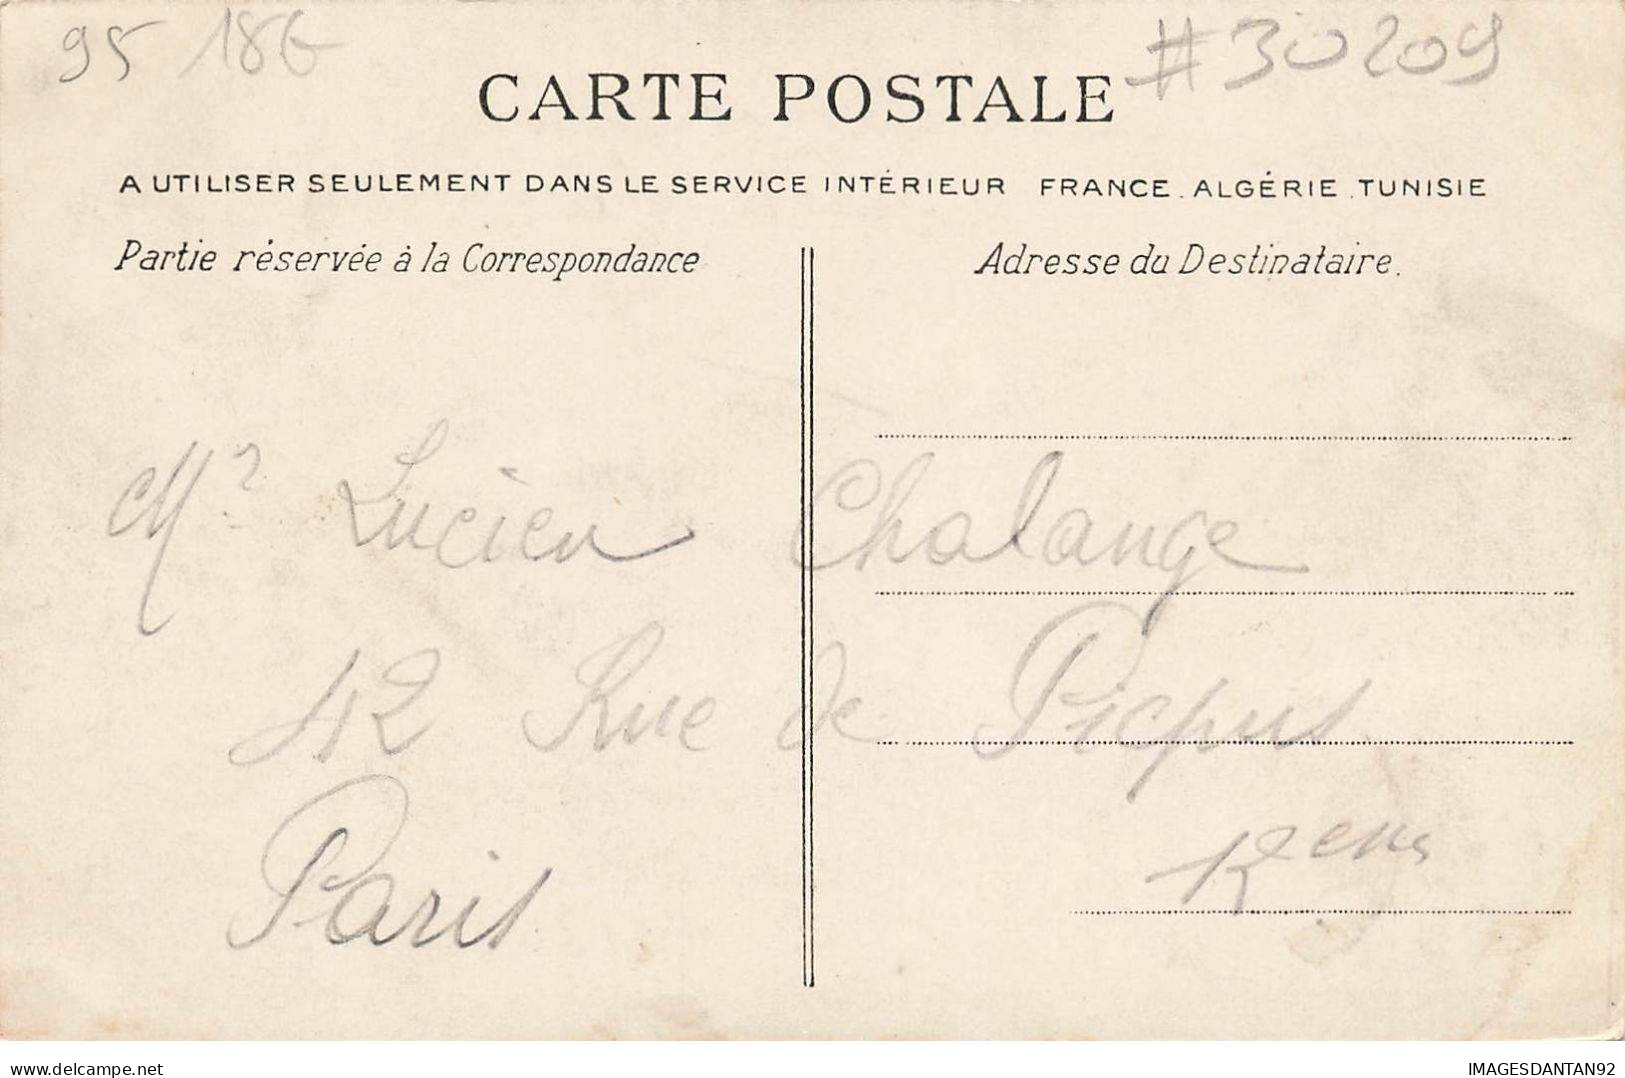 95 186 #30209
CARTE POSTALE
A UTILISER SEULEMENT DANS LE SERVICE INTÉRIEUR FRANCE. ALGÉRIE. TUNISIE
Partie réservée à la Correspondance
Adresse du Destinataire.
Mr Lucien Chalange
42 Rue de Picpus
Paris 12eme
delcampe.net
IMAGESDANTAN92